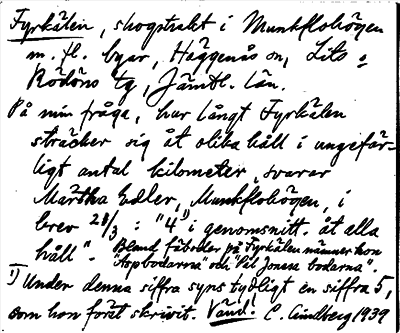 Fyrkälen, skogstrakt i Munkflohögen
m. fl. byar, Häggenås sn, Lits o
Rödöns tg, Jämtl. län.
På min fråga, hur långt Fyrkälen
sträcker sig åt olika håll i ungefär-
ligt antal kilometer, svarar
Märtha Edler, Munkflohögen, i
brev 28/3 : "4¹⁾ i genomsnitt åt alla
håll". Bland fäbodar på Fyrkälen nämner hon
"Aspbodarna" och "Pål Jonsa bodarna".
1) Under denna siffra syns tydligt en siffra 5,
som hon först skrivit. Vänd! C. Lindberg 1939